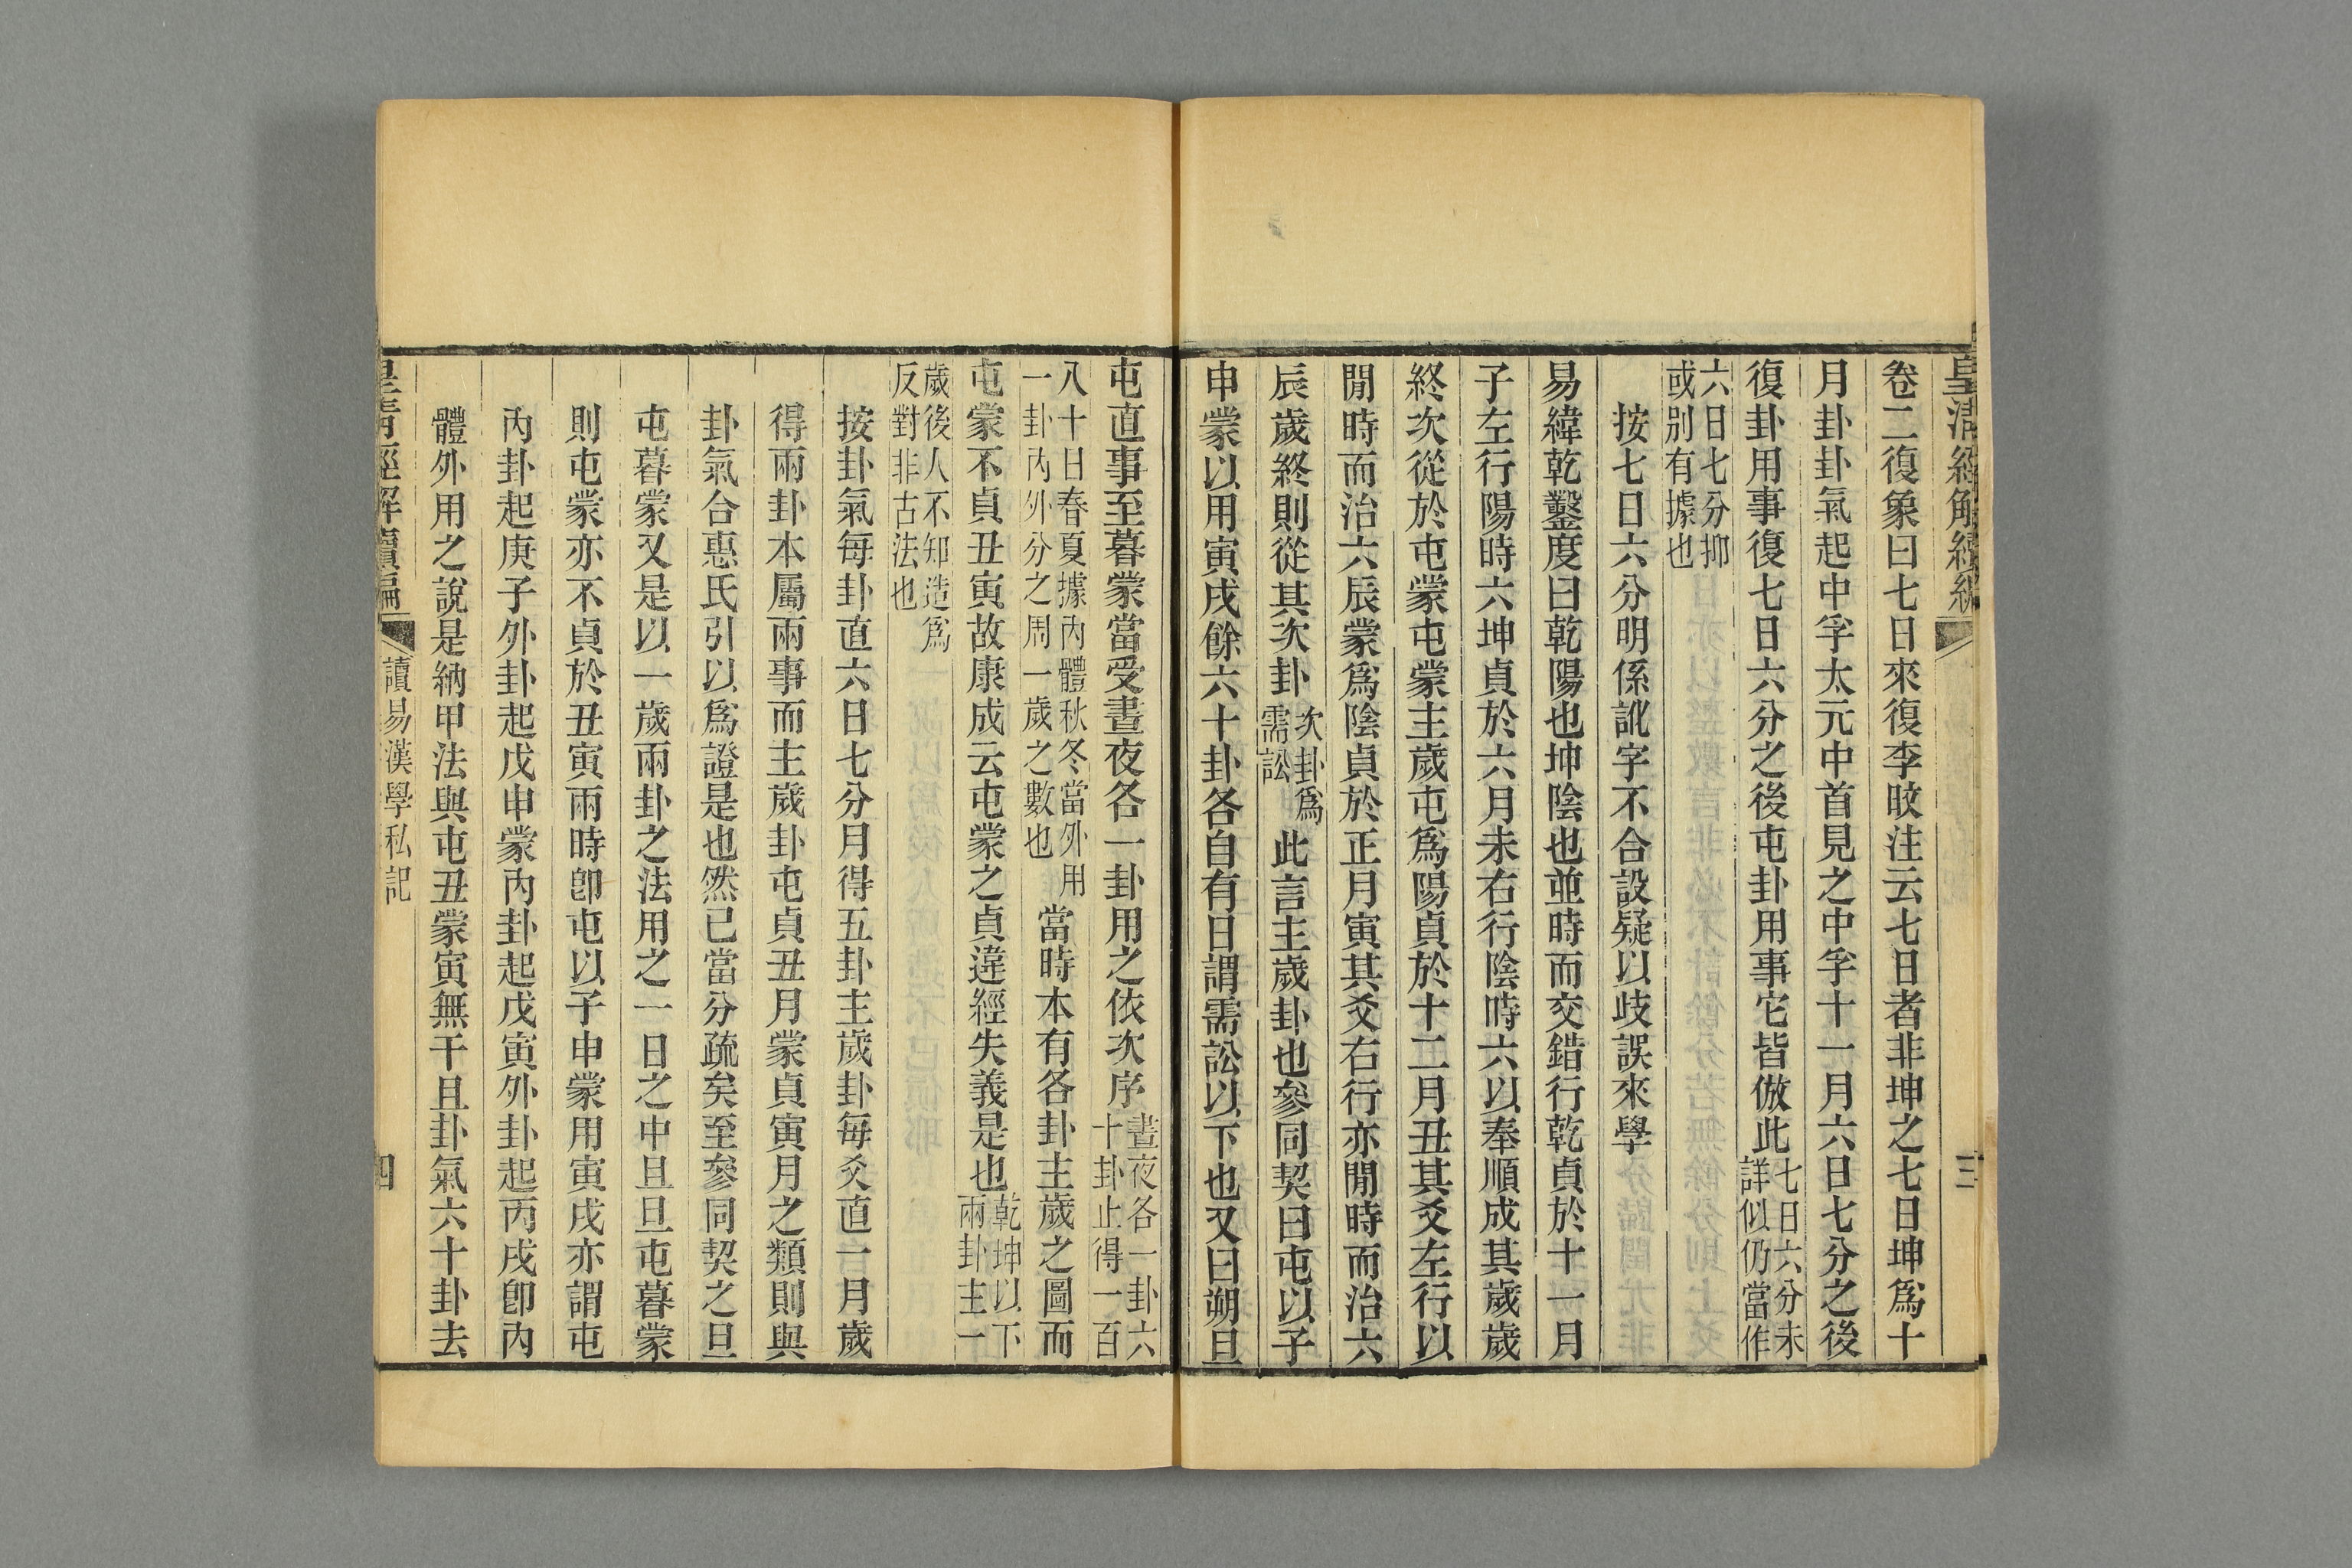 皇清經解續編
三
卷二復象曰七日來復李敀注云七日者非坤之七日坤爲十
月卦卦氣起中孚太元中首見之中孚十一月六日七分之後
復卦用事復七日六分之後屯卦用事它皆倣此七日六分未詳似仍當作
六日七分抑或别有據也
按七日六分明係訛字不合設疑以歧誤來學
易緯乾鑿度曰乾陽也坤陰也並時而交錯行乾貞於十一月
子左行陽時六坤貞於六月未右行陰時六以奉順成其歲歲
終次從於屯蒙屯蒙主歲屯爲陽貞於十二月丑其爻左行以
閒時而治六辰蒙爲陰貞於正月寅其爻右行亦閒時而治六
辰歲終則從其次卦次卦爲需訟此言主歲卦也參同契曰屯以子
申蒙以用寅戌餘六十卦各自有日謂需訟以下也又曰朔旦
屯直事至暮蒙當受晝夜各一卦用之依次序晝夜各一卦六十卦止得一百
八十日春夏據內體秋冬當外用一卦內外分之周一歲之數也當時本有各卦主歲之圖而
屯蒙不貞丑寅故康成云屯蒙之貞違經失義是也乾坤以下兩卦主一
歲後人不知造爲反對非古法也
按卦氣每卦直六日七分月得五卦主歲卦每爻直一月歲
得兩卦本屬兩事而主歲卦屯貞丑月蒙貞寅月之類則與
卦氣合惠氏引以爲證是也然已當分疏矣至參同契之旦
屯暮蒙又是以一歲兩卦之法用之一日之中且旦屯暮蒙
則屯蒙亦不貞於丑寅兩時卽屯以子申蒙用寅戌亦謂屯
內卦起庚子外卦起戊申蒙內卦起戊寅外卦起丙戌卽內
體外用之說是納甲法與屯丑蒙寅無干且卦氣六十卦去
皇清經解續編
讀易漢學私記
四